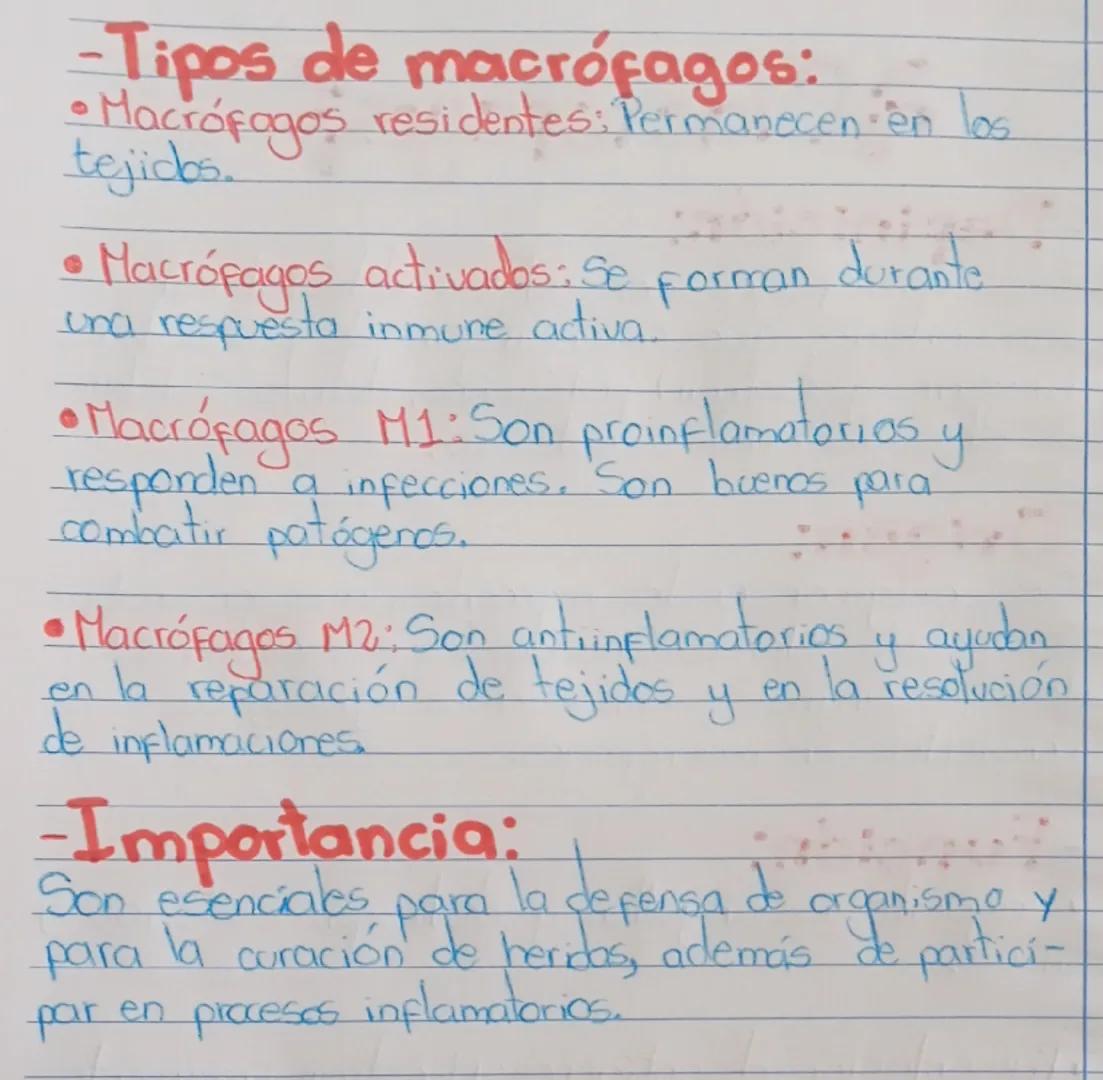 -Tipos de macrófagos:
• Macrófagos residentes: Permanecen en los
tejidos.
• Macrófagos activados: Se forman durante
una respuesta inmune activa.
• Macrófagos M1: Son proinflamatorios y
responden a infecciones. Son buenos para
combatir patógenos.
• Macrófagos M2: Son antiinflamatorios y ayudan
en la reparación de tejidos y en la resolución
de inflamaciones.
-Importancia:
Son esenciales para la defensa de organismo y
para la curación de heridas, además de partici-
par en procesos inflamatorios.